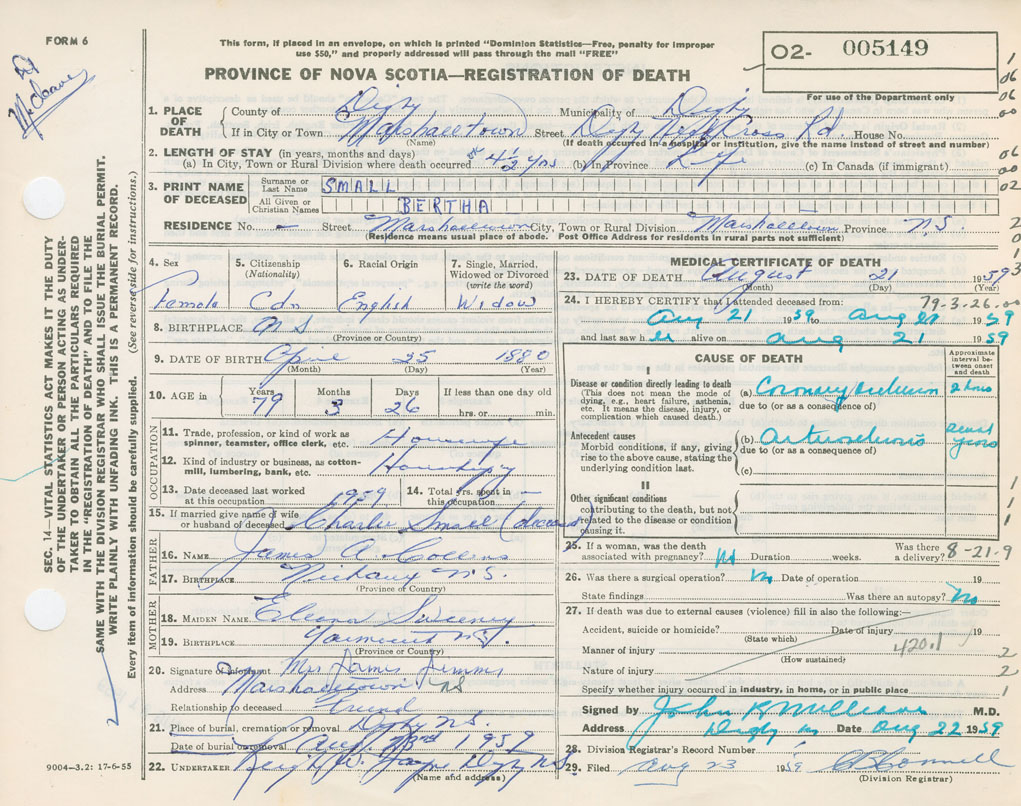 FORM 6
This form, if placed in an envelope, on which is printed "Dominion Statistics—Free, penalty for improper
use $50," and properly addressed will pass through the mail "FREE"
PROVINCE OF NOVA SCOTIA—REGISTRATION OF DEATH
O2- 005149
For use of the Department only
1. PLACE OF DEATH
County of Digby Municipality of Digby
If in City or Town Marshalltown Street Digby Rd. House No.
(Name) (If death occurred in a hospital or institution, give the name instead of street and number)
2. LENGTH OF STAY (in years, months and days)
(a) In City, Town or Rural Division where death occurred 4 1/2 yrs (b) in Province Life (c) In Canada (if immigrant)
3. PRINT NAME OF DECEASED
Surname or Last Name SMALL
All Given or Christian Names BERTHA
RESIDENCE No. - Street Marshalltown City, Town or Rural Division Marshalltown Province N.S.
(Residence means usual place of abode. Post Office Address for residents in rural parts not sufficient)
4. Sex
Female
5. Citizenship
(Nationality)
Cdn
6. Racial Origin
English
7. Single, Married, Widowed or Divorced
(write the word)
Widow
8. BIRTHPLACE N S
(Province or Country)
9. DATE OF BIRTH April 25 1880
(Month) (Day) (Year)
10. AGE in
Years Months Days If less than one day old
79 3 26 hrs. or min.
OCCUPATION
11. Trade, profession, or kind of work as
spinner, teamster, office clerk, etc.
12. Kind of industry or business, as cotton-
mill, lumbering, bank, etc.
13. Date deceased last worked
at this occupation 1959
14. Total yrs. spent in
this occupation -
15. If married give name of wife
or husband of deceased Charlie Small (deceased)
FATHER
16. NAME James A. Collins
17. BIRTHPLACE N.S.
(Province or Country)
MOTHER
18. MAIDEN NAME Sweeney
19. BIRTHPLACE Yarmouth N.S.
(Province or Country)
20. Signature of informant Mrs James
Address Marshalltown NS
Relationship to deceased Friend
21. Place of burial, cremation or removal Digby N.S.
Date of burial or removal Aug. 23rd 1959
22. UNDERTAKER Digby NS
(Name and address)
9004-3.2: 17-6-55
MEDICAL CERTIFICATE OF DEATH
23. DATE OF DEATH August 21 1959
(Month) (Day)
24. I HEREBY CERTIFY that I attended deceased from: 79-3-26.00
Aug 21 1959 to Aug 21 1959
and last saw her alive on Aug 21 1959
CAUSE OF DEATH
Approximate interval between onset and death
I
Disease or condition directly leading to death
(This does not mean the mode of dying, e.g., heart failure, asthenia, etc. It means the disease, injury, or complication which caused death.)
(a) Coronary 2 hours
due to (or as a consequence of)
Antecedent causes
Morbid conditions, if any, giving rise to the above cause, stating the underlying condition last.
(b) years
due to (or as a consequence of)
(c)
II
Other significant conditions
contributing to the death, but not related to the disease or condition causing it.
25. If a woman, was the death
associated with pregnancy? No Duration weeks. Was there a delivery? 8-21.9
26. Was there a surgical operation? No Date of operation 19
State findings Was there an autopsy? No
27. If death was due to external causes (violence) fill in also the following:—
Accident, suicide or homicide? Date of injury 19
(State which)
Manner of injury 420.1
(How sustained)
Nature of injury
Specify whether injury occurred in industry, in home, or in public place
Signed by M.D.
Address Digby Date Aug 22 1959
28. Division Registrar's Record Number
29. Filed Aug 23 1959
(Division Registrar)
SEC. 14—VITAL STATISTICS ACT MAKES IT THE DUTY
OF THE UNDERTAKER OR PERSON ACTING AS UNDER-
TAKER TO OBTAIN ALL THE PARTICULARS REQUIRED
IN THE "REGISTRATION OF DEATH" AND TO FILE THE
SAME WITH THE DIVISION REGISTRAR WHO SHALL ISSUE THE BURIAL PERMIT.
WRITE PLAINLY WITH UNFADING INK. THIS IS A PERMANENT RECORD.
Every item of information should be carefully supplied. (See reverse side for instructions.)